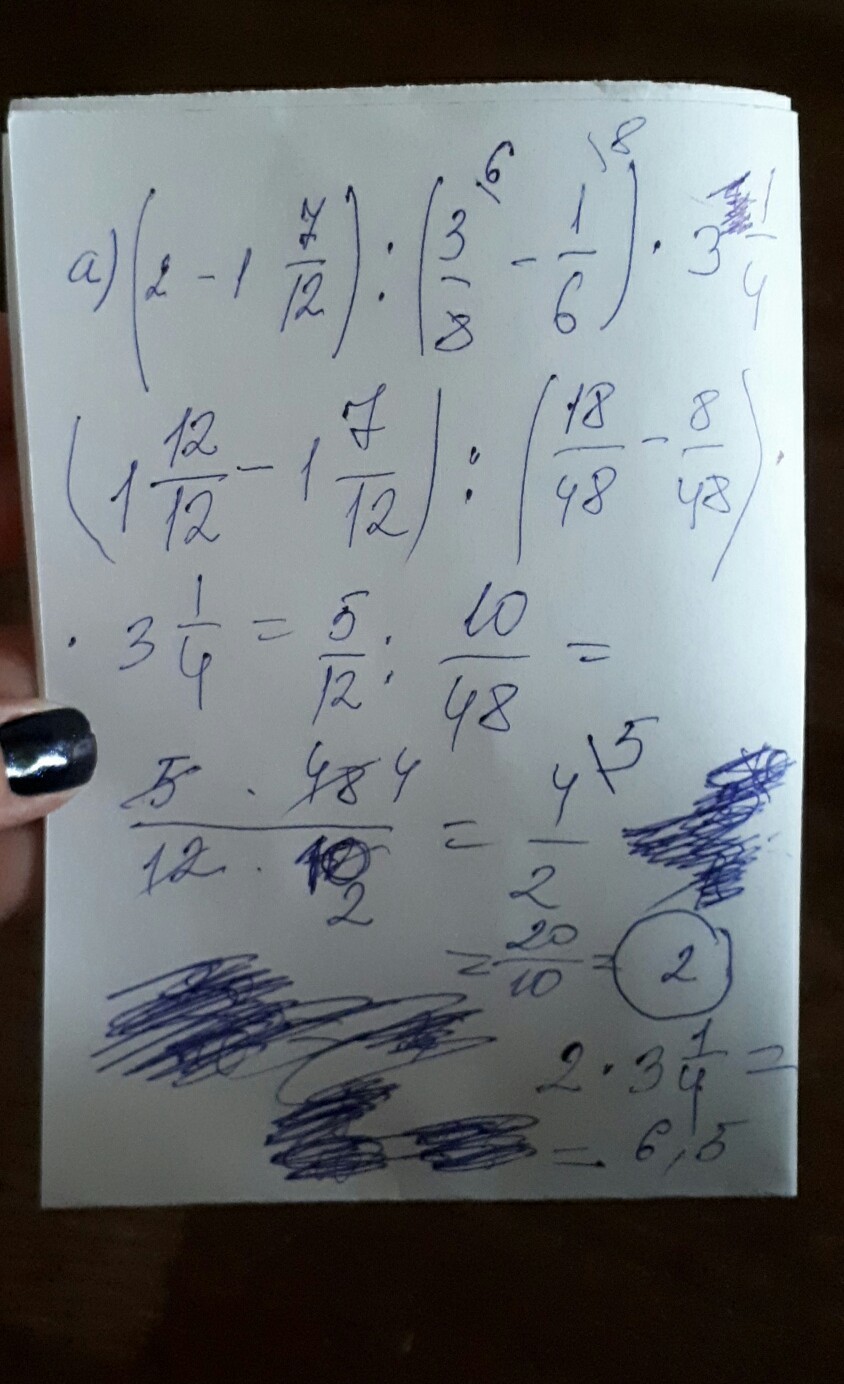 a) (2 - 1 7/12) : (3/8 \6 - 1/6 \8) · 3 1/4
(1 12/12 - 1 7/12) : (18/48 - 8/48) ·
· 3 1/4 = 5/12 : 10/48 =
5 · 48 4 / 12 · 10 2 = 4/2 \5
= 20/10 = 2
2 · 3 1/4 =
= 6,5